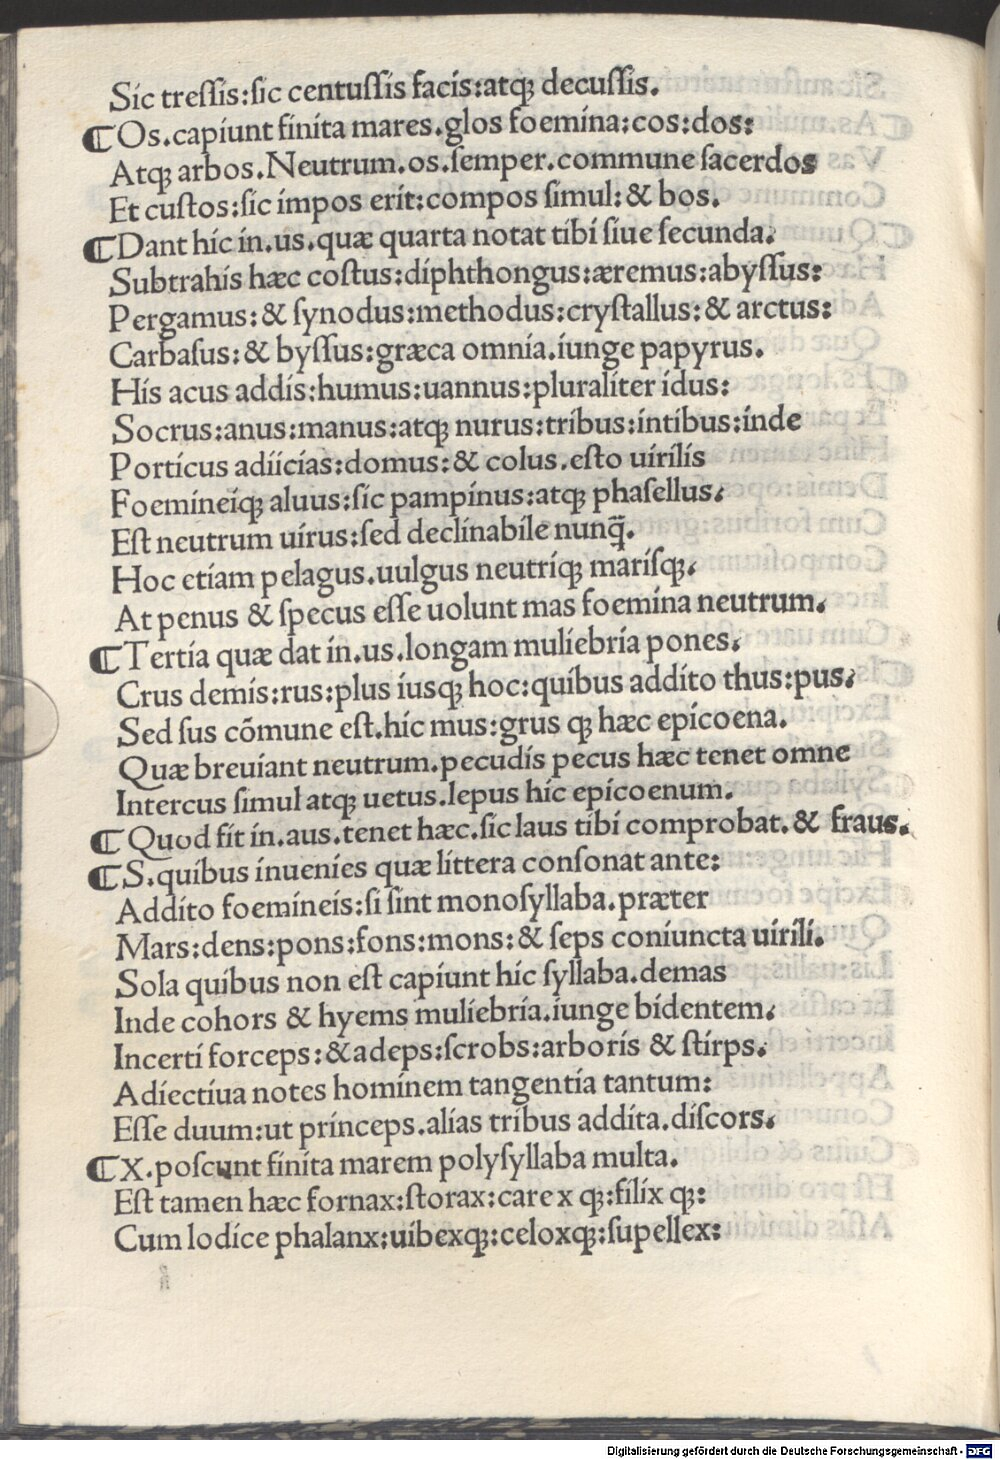 Sic treſſis:ſic centuſſis facis:atqꝫ decuſſis.
¶Os.capiunt finita mares.glos foemina:cos:dos:
Atqꝫ arbos.Neutrum.os.ſemper.commune ſacerdos
Et cuſtos:ſic impos erit:compos ſimul:& bos.
¶Dant hic in.us.quæ quarta notat tibi ſiue ſecunda.
Subtrahis hæc coſtus:diphthongus:æremus:abyſſus:
Pergamus:& ſynodus:methodus:cryſtallus:& arctus:
Carbaſus:& byſſus:græca omnia.iunge papyrus.
His acus addis:humus:uannus:pluraliter idus:
Socrus:anus:manus:atqꝫ nurus:tribus:intibus:inde
Porticus adiicias:domus:& colus.eſto uirilis
Foemineiqꝫ aluus:ſic pampinus:atqꝫ phaſellus.
Eſt neutrum uirus:ſed declinabile nunq̃.
Hoc etiam pelagus.uulgus neutriqꝫ mariſqꝫ.
At penus & ſpecus eſſe uolunt mas foemina neutrum.
¶Tertia quæ dat in.us.longam muliebria pones.
Crus demis:rus:plus iusqꝫ hoc:quibus addito thus:pus.
Sed ſus cõmune eſt.hic mus:grus qꝫ hæc epicoena.
Quæ breuiant neutrum.pecudis pecus hæc tenet omne
Intercus ſimul atqꝫ uetus.lepus hic epicoenum.
¶Quod fit in.aus.tenet hæc.ſic laus tibi comprobat.& fraus.
¶S.quibus inuenies quæ littera conſonat ante:
Addito foemineis:ſi ſint monoſyllaba.præter
Mars:dens:pons:fons:mons:& ſeps coniuncta uirili.
Sola quibus non eſt capiunt hic ſyllaba.demas
Inde cohors & hyems muliebria.iunge bidentem.
Incerti forceps:&adeps:ſcrobs:arboris & ſtirps.
Adiectiua notes hominem tangentia tantum:
Eſſe duum:ut princeps.alias tribus addita.diſcors.
¶X.poſcunt finita marem polyſyllaba multa.
Eſt tamen hæc fornax:ſtorax:care x qꝫ:filix qꝫ:
Cum lodice phalanx:uibexqꝫ:celoxqꝫ:ſupellex:
Digitalisierung gefördert durch die Deutsche Forschungsgemeinschaft - DFG